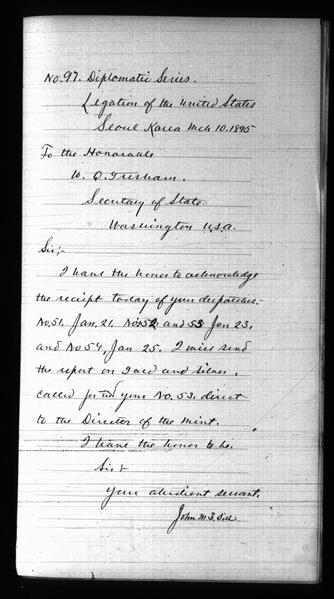 No. 97. Diplomatic Series.
Legation of the United States
Seoul Korea Mch 10. 1895
To the Honorable
W. Q. Gresham.
Secretary of State.
Washington U.S.A.
Sir;
I have the honor to acknowledge
the receipt today of your despatches.
No. 51, Jan. 21, Nos 52 and 53 Jan 23,
and No 54, Jan 25. I will send
the report on Gold and Silver.
called for in your No. 53. direct
to the Director of the Mint.
I have the honor to be.
Sir
Your obedient servant.
John M. B. Sill